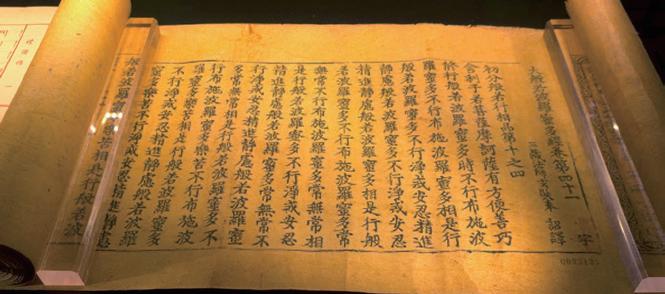 大般若波羅蜜多經卷第四十一
三藏法師玄奘奉 詔譯
宇
初分般若行相品第十之四
舍利子若菩薩摩訶薩有方便善巧
修行般若波羅蜜多時不行布施波
羅蜜多不行布施波羅蜜多相是行
般若波羅蜜多不行淨戒安忍精進
靜慮般若波羅蜜多不行淨戒安忍
精進靜慮般若波羅蜜多相是行般
若波羅蜜多不行布施波羅蜜多常
無常不行布施波羅蜜多常無常相
是行般若波羅蜜多不行淨戒安忍
精進靜慮般若波羅蜜多常無常不
行淨戒安忍精進靜慮般若波羅蜜
多常無常相是行般若波羅蜜多不
行布施波羅蜜多樂苦不行布施波
羅蜜多樂苦相是行般若波羅蜜多
不行淨戒安忍精進靜慮般若波羅
蜜多樂苦不行淨戒安忍精進靜慮
般若波羅蜜多樂苦相是行般若波